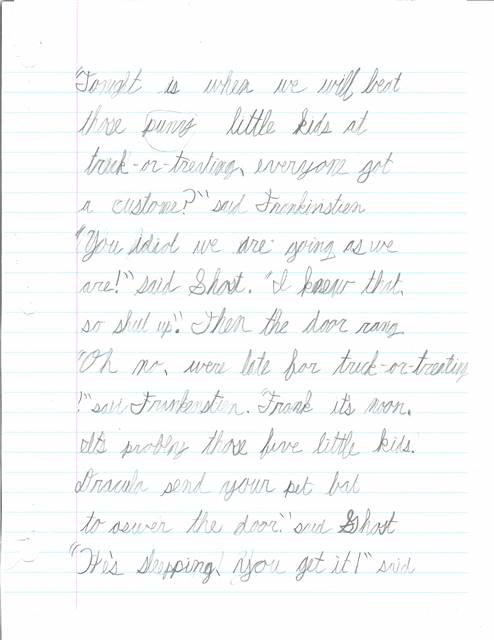 "Tonight is when we will beat
those puny little kids at
trick-or-treating, everyone got
a custome?" said Frankinstien
"You idiot we are going as we
are!" said Ghost. "I knew that,
so shut up". Then the door rang
"Oh no, were late for trick-or-treating
!" said Frankenstien. "Frank it's noon.
It's probly those five little kids.
Dracula send your pet bat
to aswer the door." said Ghost
"He's sleepping! You get it!" said